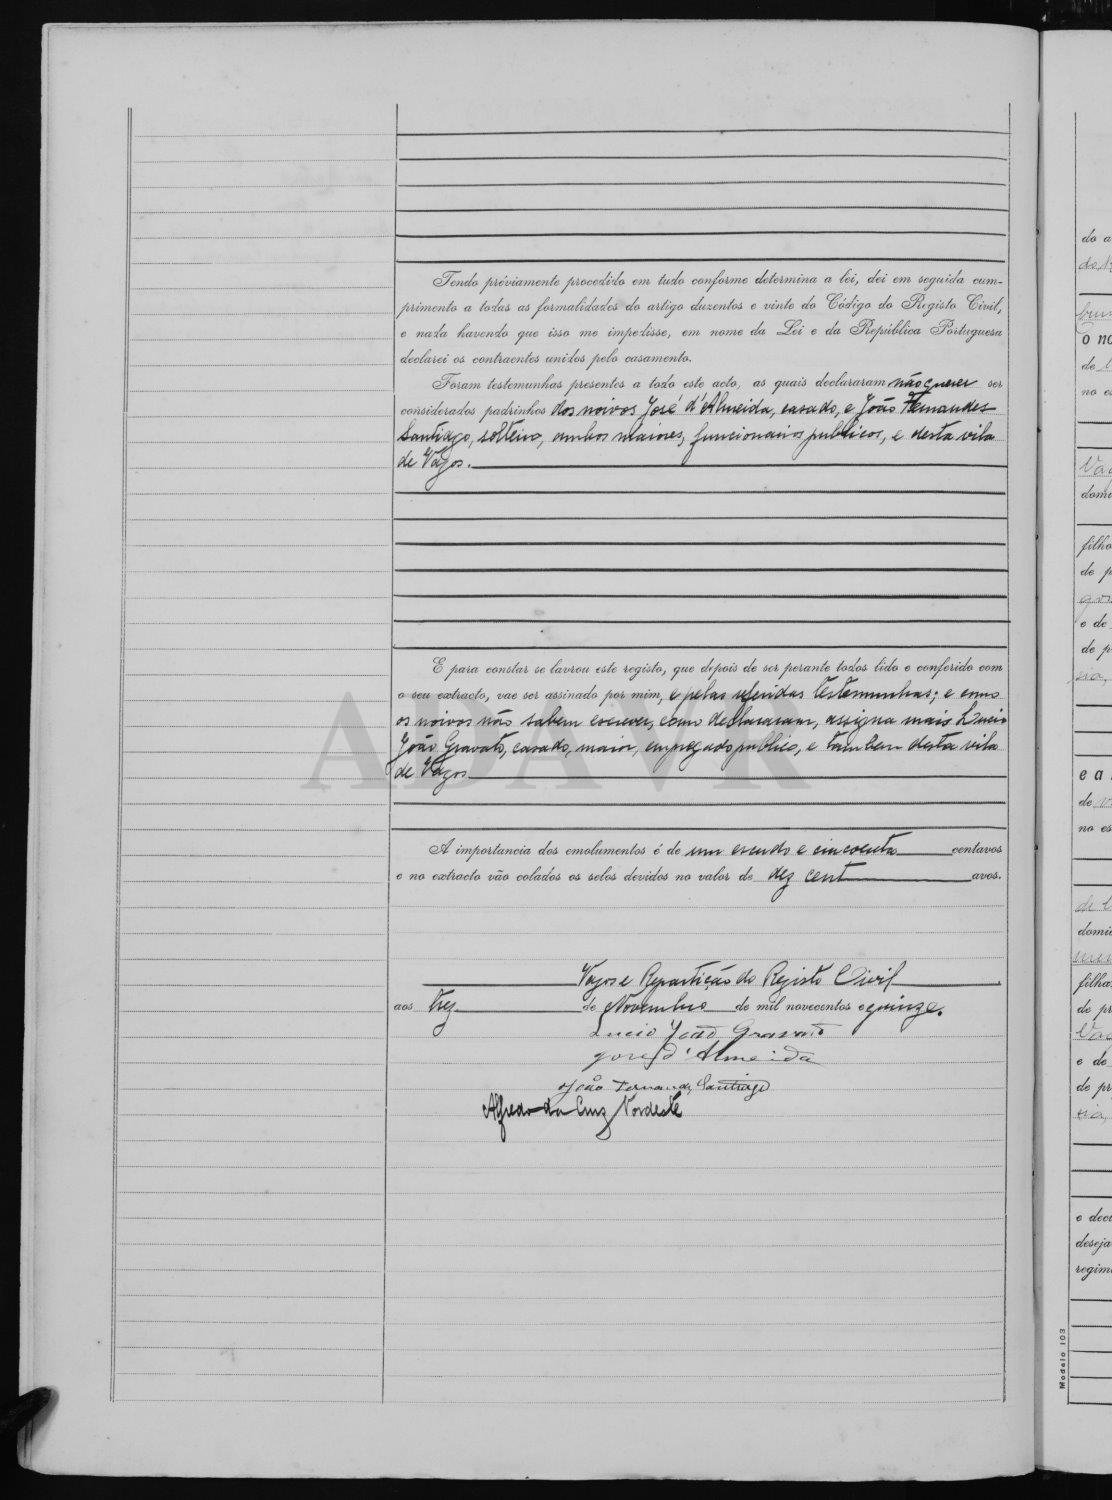 Tendo préviamente procedido em tudo conforme determina a lei, dei em seguida cum-
primento a todas as formalidades do artigo duzentos e vinte do Código do Registo Civil,
e nada havendo que isso me impedisse, em nome da Lei e da República Portuguesa
declarei os contraentes unidos pelo casamento.
Foram testemunhas presentes a todo este acto, as quais declararam não querer ser
considerados padrinhos dos noivos José d'Almeida, casado, e João Fernandes
Santiago, solteiro, ambos maiores, funcionarios publicos, e desta vila
de Vagos.
E para constar se lavrou este registo, que depois de ser perante todos lido e conferido com
o seu extracto, vae ser assinado por mim, e pelas referidas testemunhas; e como
os noivos não sabem escrever, como declararam, assigna mais Lucio
João Gravato, casado, maior, empregado publico, e tambem desta vila
de Vagos
ADAVR
A importancia dos emolumentos é de um escudo e cincoenta centavos
e no extracto vão colados os selos devidos no valor de dez cent avos.
Vagos e Repartição do Registo Civil
aos trez de Novembro de mil novecentos e quinze.
Lucio João Gravato
José d'Almeida
João Fernandes Santiago
Alfredo da Cruz Nordeste
do a
o no
de
no es
Va
domi
filho
de p
e de
de p
e a
de
no es
domi
filha
de pr
e de
de pr
e decl
deseja
regim
Modelo 103